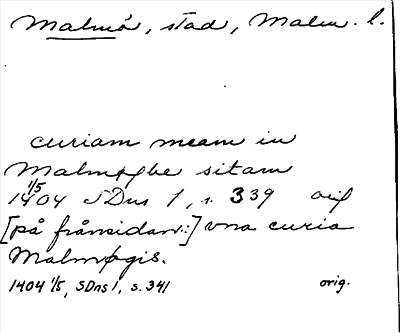 Malmö, stad, Malm. l.
curiam meam in
Malmøghe sitam
1404 1/5 SDns 1, s. 339 orig
[på frånsidan:] vna curia
Malmøgis.
1404 1/5, SDns 1, s. 341 orig.